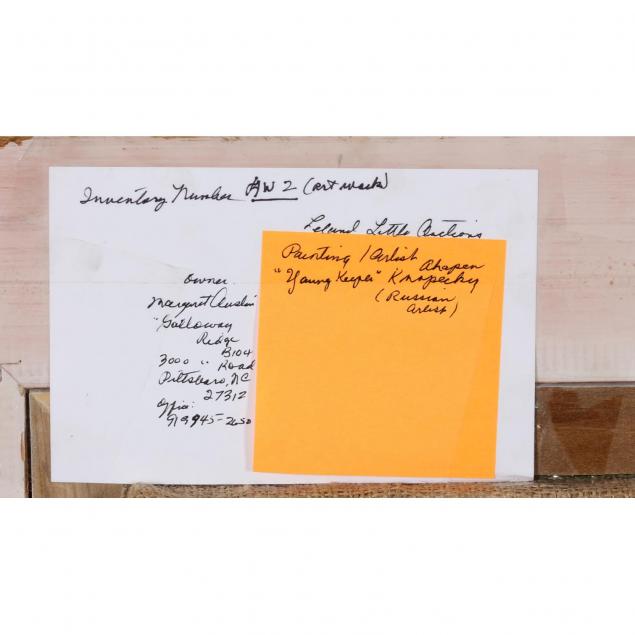 Inventory Number AW 2 (art work)
Leland Little Auctions
Owner
Margaret Austin
"Galloway
Ridge
3000 " Road B104
Pittsboro, NC
27312
Office:
919 945-2650
Painting / Artist
"Young Keeper" Knopecky
(Russian
Artist)